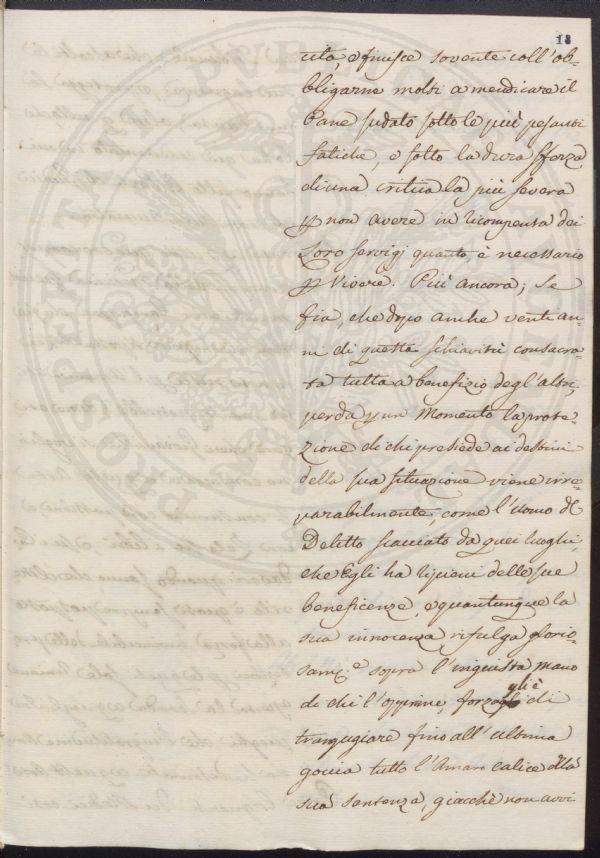 18
cita, e finisce sovente coll'ob-
bligarne molti a mendicare il
Pane sudato sotto le più pesanti
fatiche, e sotto la dura sforza
di una critica la più severa
p non avere in ricompensa dei
Loro servigj quanto è necessario
p Vivere. Più ancora; Se
fia, che dopo anche venti an-
ni di questa schiavitù consacra-
ta tutta a benefizio degl'altri,
perda p un Momento la prote-
zione di chi presiede ai destini
della sua situazione viene irre-
parabilmente, come l'uomo del
Delitto scacciato da quei luoghi,
che Egli ha ripieni delle sue
beneficenze, e quantunque la
sua innocenza rifulga glorio-
samte sopra l'ingiusta mano
di chi l'opprime, forza gli è di
trangugiare fino all'ultima
goccia tutto l'Amaro calice della
sua sentenza, giacchè non avvi